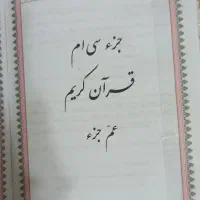 جزء سی ام
قرآن کریم
عمّ جزء